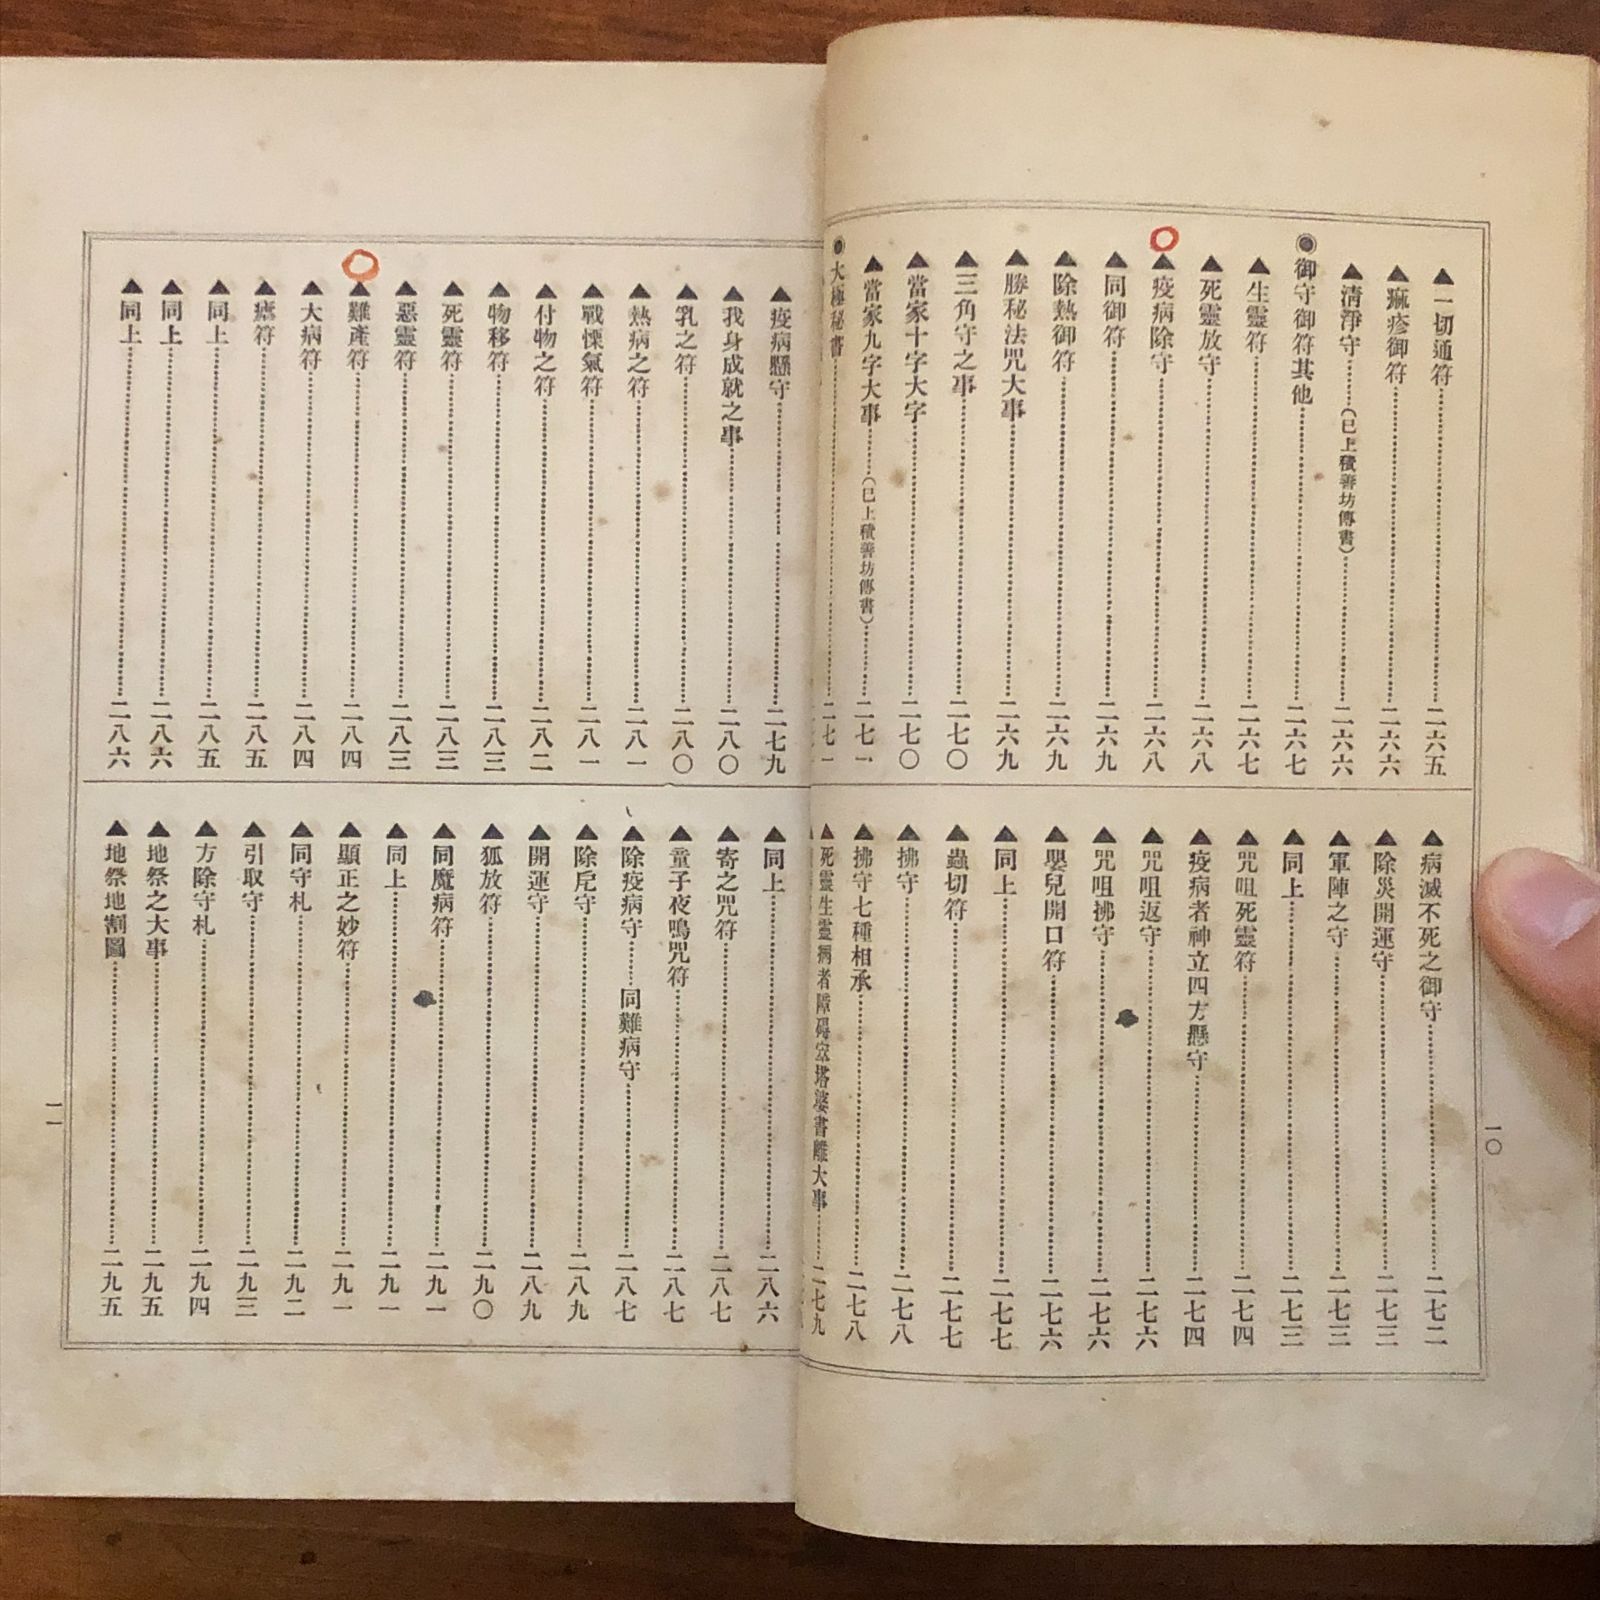 ▲一切通符……二六五
▲痲疹御符……二六六
▲淸淨守……(已上積善坊傳書)……二六六
◉御守御符其他……二六七
▲生靈符……二六七
▲死靈放守……二六八
▲疫病除守……二六八
▲同御符……二六九
▲除熱御符……二六九
▲勝秘法咒大事……二六九
▲三角守之事……二七〇
▲當家十字大字……二七〇
▲當家九字大事……(已上積善坊傳書)……二七一
◉大極秘書……二七一
▲病滅不死之御守……二七二
▲除災開運守……二七三
▲軍陣之守……二七三
▲同上……二七三
▲咒咀死靈符……二七四
▲疫病者神立四方懸守……二七四
▲咒咀返守……二七六
▲咒咀拂守……二七六
▲嬰兒開口符……二七六
▲同上……二七七
▲蟲切符……二七七
▲拂守……二七八
▲拂守七種相承……二七八
▲死靈生靈病者障碍塔婆書離大事……二七九
一〇
▲疫病懸守……二七九
▲我身成就之事……二八〇
▲乳之符……二八〇
▲熱病之符……二八一
▲戰慄氣符……二八一
▲付物之符……二八二
▲物移符……二八三
▲死靈符……二八三
▲惡靈符……二八三
▲難產符……二八四
▲大病符……二八四
▲瘧符……二八五
▲同上……二八五
▲同上……二八六
▲同上……二八六
▲同上……二八六
▲寄之咒符……二八七
▲童子夜鳴咒符……二八七
▲除疫病守……同難病守……二八七
▲除厄守……二八九
▲開運守……二八九
▲狐放符……二九〇
▲同魔病符……二九一
▲同上……二九一
▲顯正之妙符……二九一
▲同守札……二九二
▲引取守……二九三
▲方除守札……二九四
▲地祭之大事……二九五
▲地祭地割圖……二九五
一一